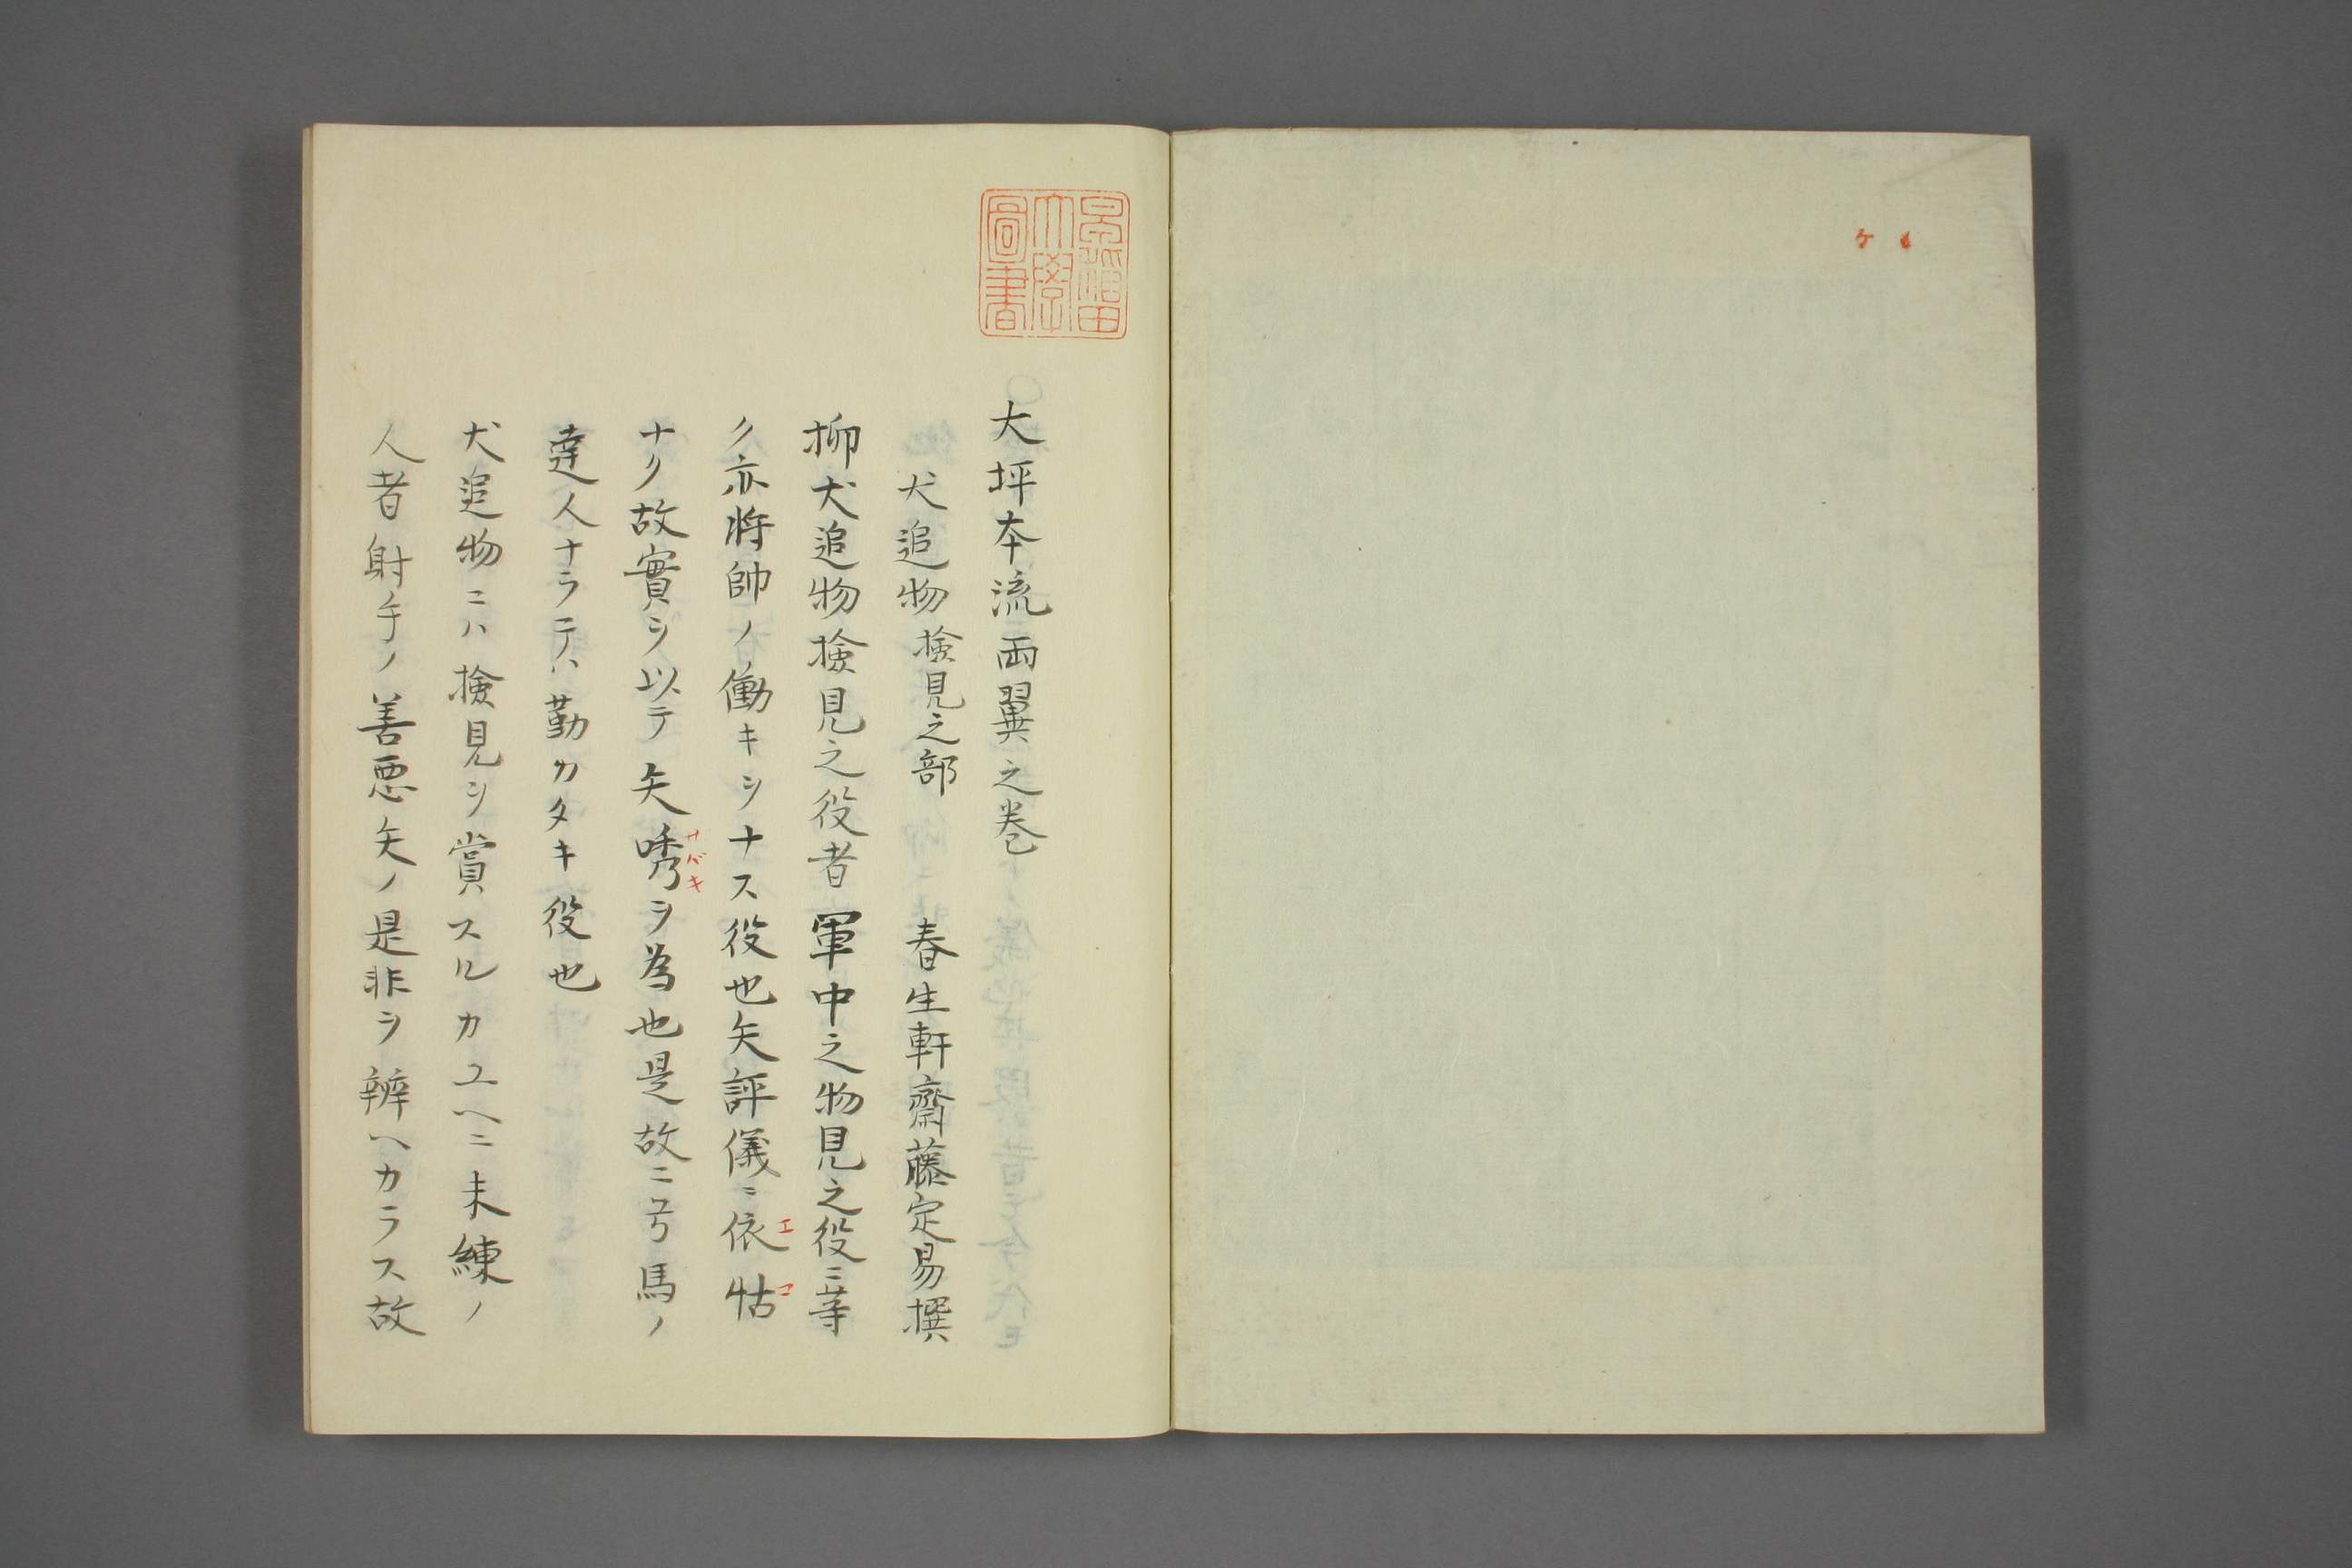 ケ
早稲田大學圖書
大坪本流両翼之巻
犬追物検見之部 春生軒齋藤定易撰
抑犬追物検見之役者軍中之物見之役ニ等
ク亦將帥ノ働キヲナス役也矢評儀ニ依怙
エコ
ナク故實ヲ以テ矢嗁ヲ為也是故ニ弓馬ノ
サバキ
達人ナラテハ勤カタキ役也
犬追物ニハ検見ヲ賞スルカユヘニ未練ノ
人者射手ノ善悪矢ノ是非ヲ辨ヘカラス故